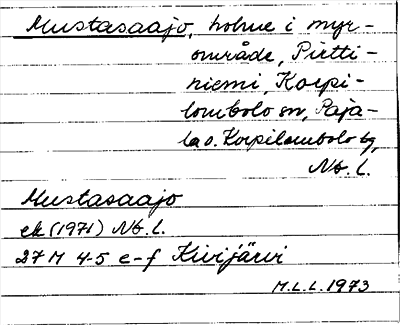 Mustasaajo, holme i myr-
område, Pirtti-
niemi, Korpi-
lombolo sn, Paja-
la o. Korpilombolo tg,
Nb. l.
Mustasaajo
ek (1971) Nb. l.
27 M 4-5 e-f Kivijärvi
M.L.L. 1973